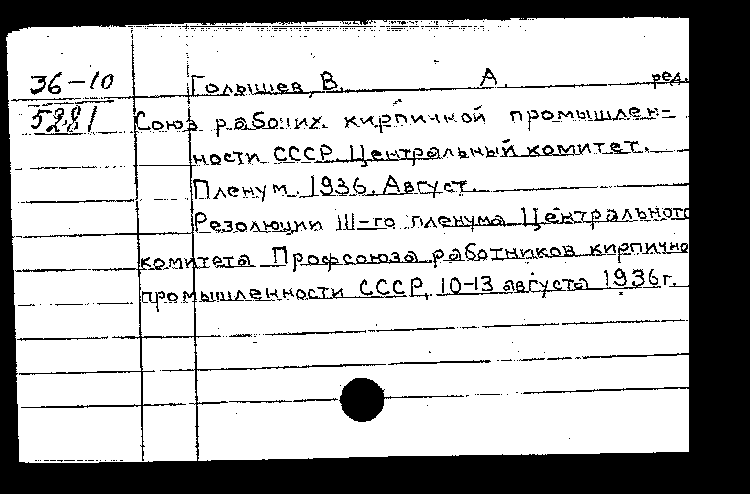 36-10 Голышев, В. А. ред.
5281 Союз рабочих кирпичной промышлен=
ности СССР. Центральный комитет.
Пленум. 1936. Август.
Резолюции III-го пленума Центрального
комитета Профсоюза работников кирпично
промышленности СССР, 10-13 августа 1936г.